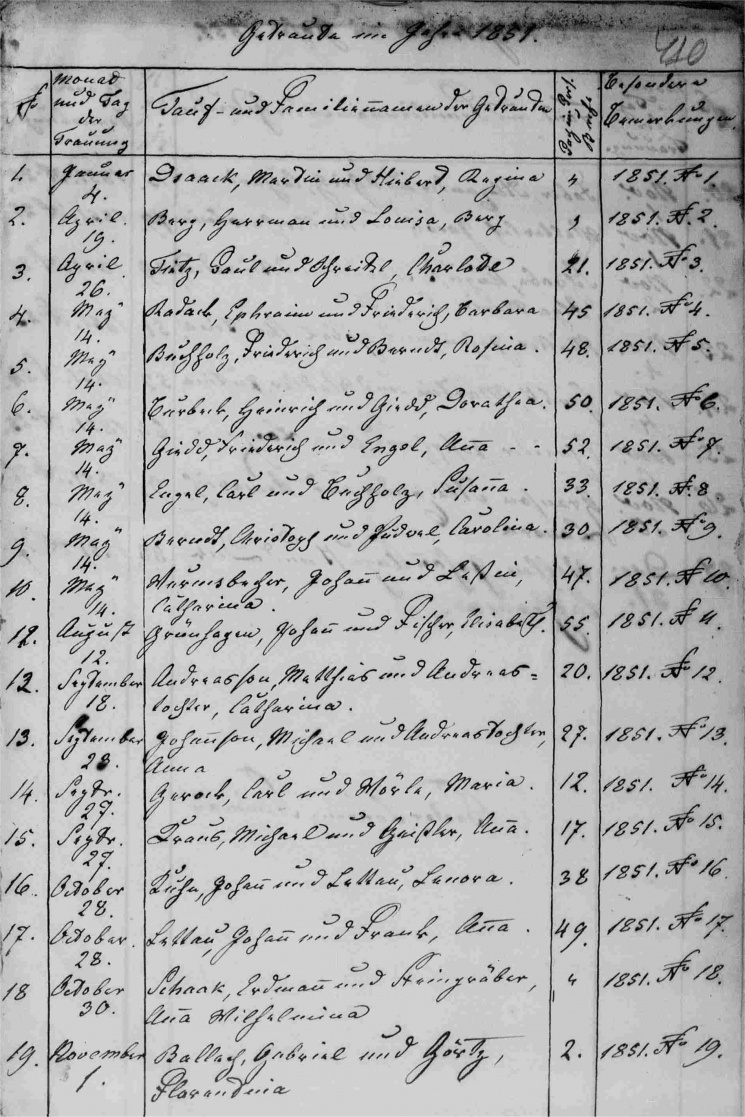 Getraute im Jahre 1851.
№ Monat und Tag der Trauung Tauf- und Familiennamen der Getrauten Besondere Bemerkungen
1. Januar 4. Draack, Martin und Hiebert, Regina " 1851. № 1.
2. April. 19. Berg, Herrman und Louisa, Berg 1851. № 2.
3. April 26. Paul und Charlotte 21. 1851. № 3.
4. May 14. Radack, Ephraim und Friederich, Barbara 45 1851. № 4.
5. May 14. Buchholz, Friederich und Berndt, Rosina. 48. 1851. № 5.
6. May 14. Heinrich und Giedd, Dorathea. 50. 1851. № 6.
7. May 14. Giedd, Friederich und Engel, Anna - - 52. 1851. № 7.
8. May 14. Engel, Carl und Buchholz, Susanna 33. 1851. № 8
9. May 14. Berndt, Christoph und Carolina. 30. 1851. № 9.
10. May 14. Wurmsbecher, Johann und 47. 1851. № 10.
Catharina.
August 12. Grünhagen, Johann und Fischer, Elisabeth. 55. 1851. № 11.
12. September 18. Andreasson, Matthias und Andreas= 20. 1851. № 12.
tochter, Catharina.
13. September 23. Johannson, Michael und Andreastochter, 27. 1851. № 13.
Anna
14. Septr. 27. Gerock, Carl und Wörle, Maria. 12. 1851. № 14.
15. Septr. 27. Kraus, Michael und Geißler, Anna. 17. 1851. № 15.
16. October 28. Kuhn, Johann und Lettau, Lenora. 38 1851. № 16
17. October. 28. Lettau, Johann und Frank, Anna. 49. 1851. № 17.
18 October 30. Schaak, Erdmann und Steingräber, " 1851. № 18.
Anna Wilhelmina
19. November 1. Ballach, Gabriel und Görtz, 2. 1851. № 19.
Florendina